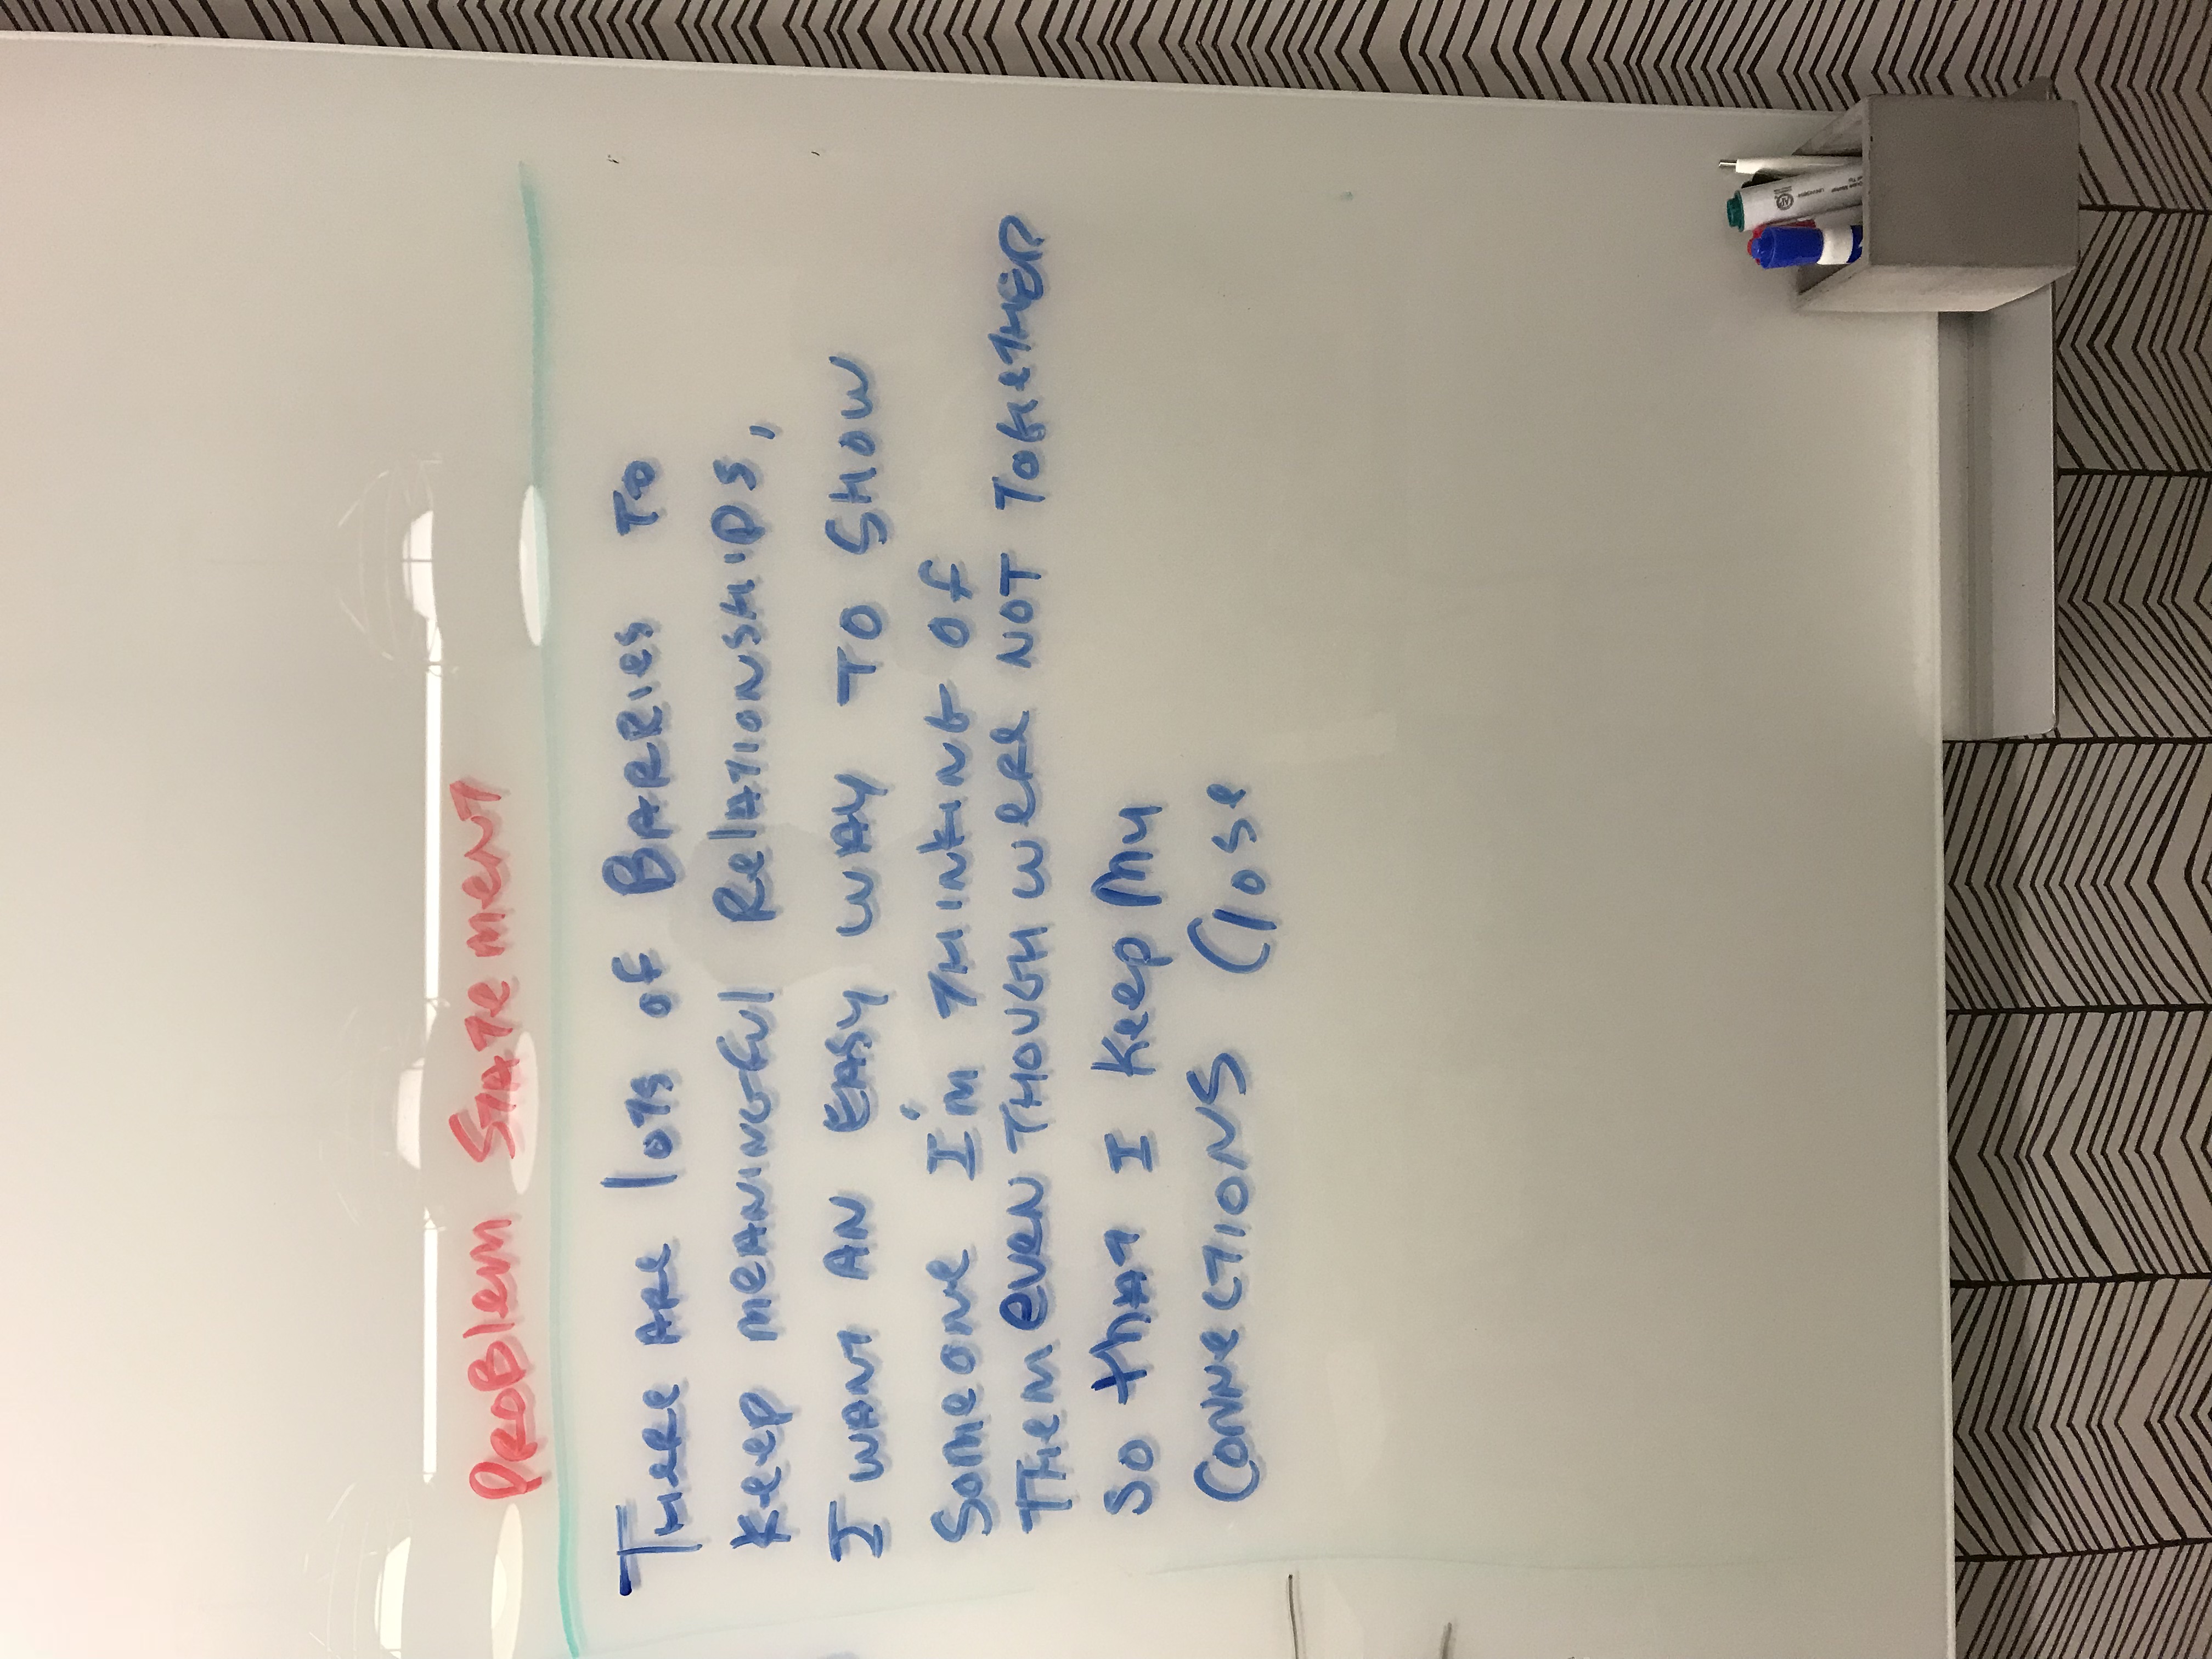 Problem Statement
There are lots of Barries to
keep meaningful Relationships,
I want an easy way to show
someone I'm thinking of
them even though were not together
so that I keep my
connections close